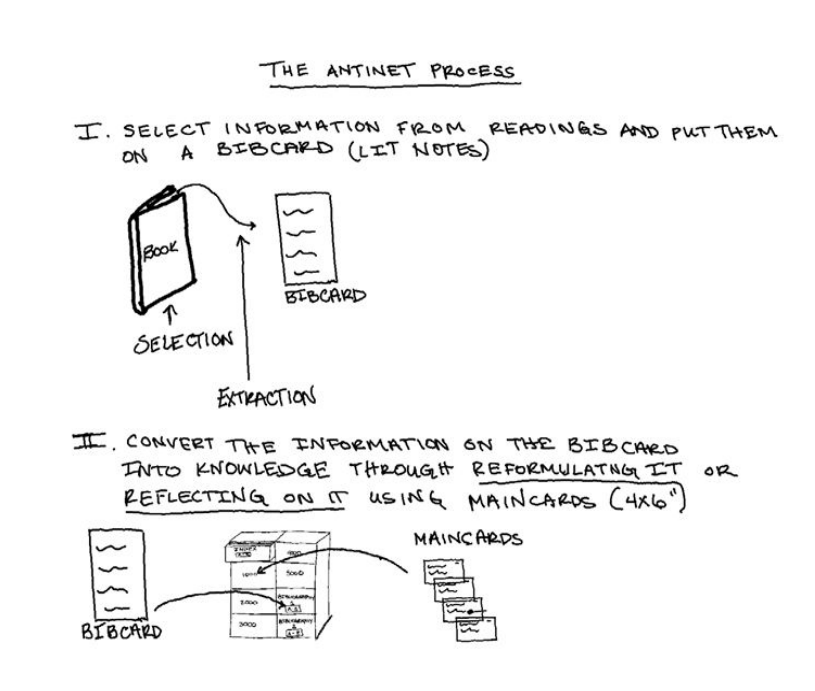 THE ANTINET PROCESS
I. SELECT INFORMATION FROM READINGS AND PUT THEM
ON A BIBCARD (LIT NOTES)
BOOK
BIBCARD
SELECTION
EXTRACTION
II. CONVERT THE INFORMATION ON THE BIBCARD
INTO KNOWLEDGE THROUGH REFORMULATNG IT OR
REFLECTING ON IT USING MAINCARDS (4X6")
MAINCARDS
5000
2000
BIBLIOGRAPHY
3000
BIBLIOGRAPHY
BIBCARD